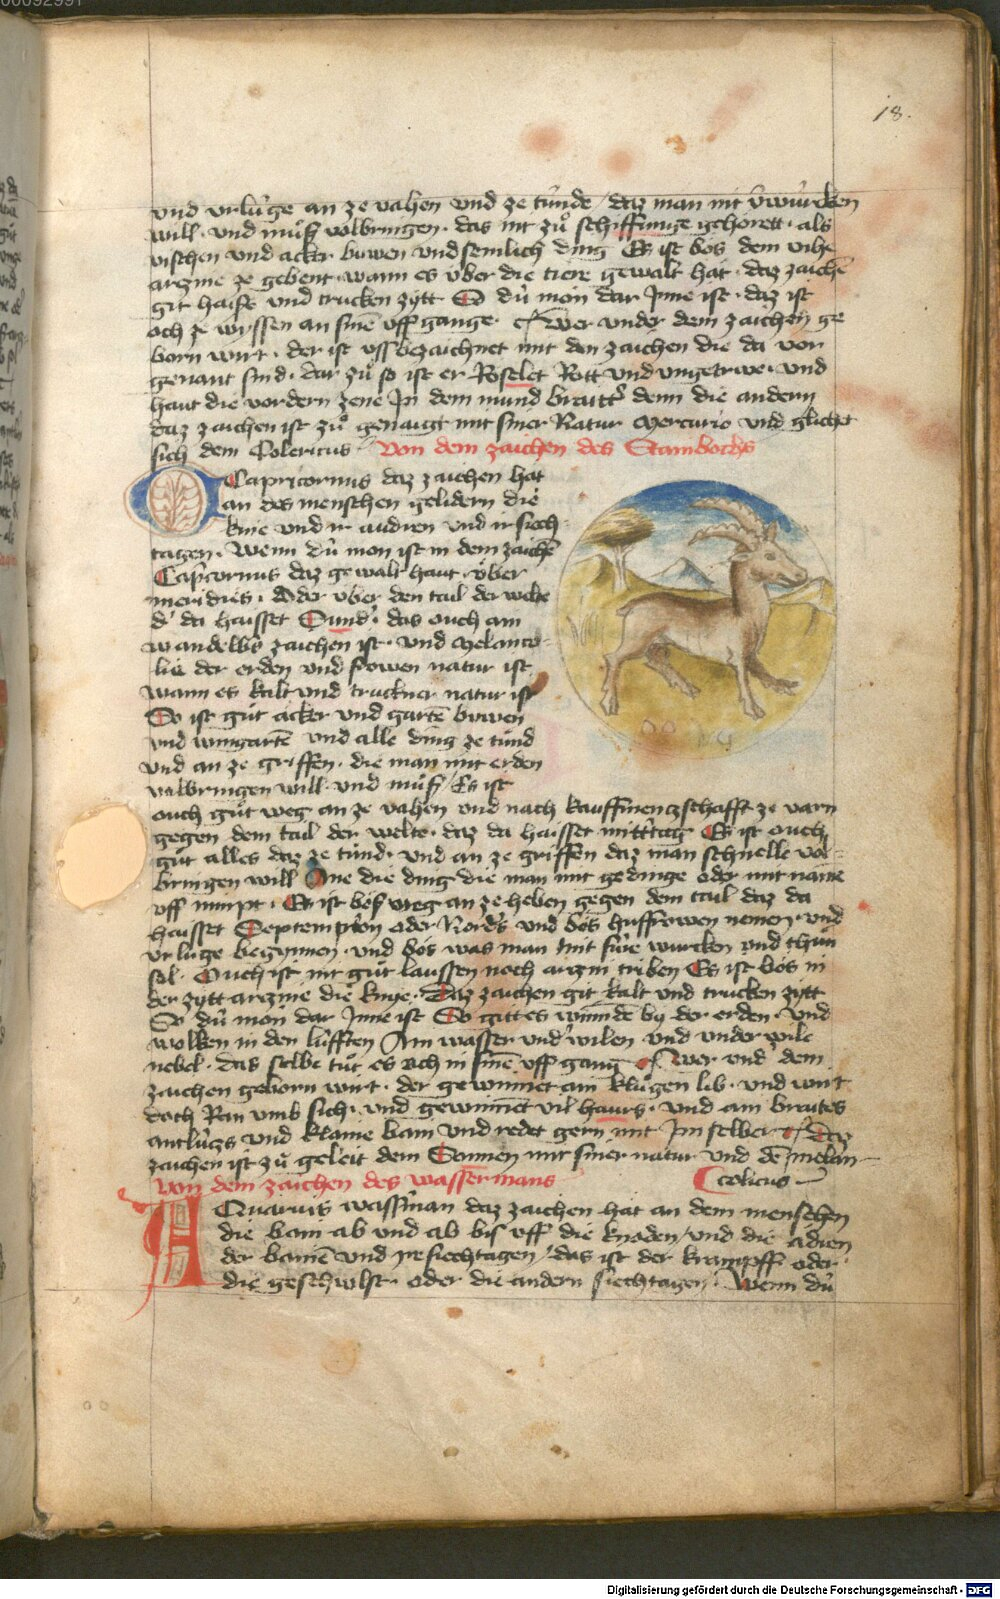 18.
vnd vrlu̇ge an ze vahen vnd ze tu̇nde / daz man mit
will · vnd můß volbringen · das nit zů schiffunge gehorett · als
vischen vnd acker buwen vnd semlich ding Es ist bo̊s dem vihe
arznie ze gebent · wann es v̇ber die tiere gewalt hat · daz zaichē
git haiſſ vnd trucken zÿtt So du̇ mon dar Jnne ist · daz ist
och ze wyssen an sinē vff gange · Wer vnder dem zaichen ge
born wirt · der ist vss bezaichnet mit den zaichen die da vor
genant sind · dar zů so ist er Roselet Rott vnd vngetrwe · vnd
haut die vordern zene Jn dem mund braittʾ denn die andern
daz zaichen ist zů genaigt mit siner Natur Mercurio vnd glichet
sich dem Colericus Von dem zaichen des Stainbocks
Capricornus daz zaichen hat
an des menschen gelidern die
knie vnd ir audren vnd ir siech
tagen · Wenn du̇ mon ist in dem zaichē
Capricornus daz gewalt haut · v̇ber
meridies · Oder v̇ber den tail der welte
dʾ da haisset Sundʾ · das ouch ain
wandelbʾ zaichen ist · vnd Melanco-
lia der erden vnd frowen natur ist
wann es kalt vnd truckner natur ist
So ist gůt acker vnd gartē buwen
vnd wingartē vnd alle ding ze tu̇nd
vnd an ze griffen · die man mit erden
volbringen will · vnd můß / Es ist
ouch gůt weg an ze vahen vnd nach kauffmenczschafft ze varn
gegen dem tail der welte · daz da haisset mitttag Es ist ouch
gůt alles daz ze tu̇nd · vnd an ze griffen daz man schnelle vol-
bringen will One die ding die man mit gedinge oder mit name
vff nimpt · Es ist bo̊ß weg an ze heben gegen dem tail daz da
haisset Septemptʾon oder Nordʾs vnd bo̊s husfrowen nemen · vnd
vrluge begynnen · vnd bo̊s was man mit fu̇re wurcken vnd thůn
sol · Ouch ist nit gůt laussen noch arznī triben Es ist bo̊s in
der zÿtt arznie die knye · Daz zaichen git kalt vnd trucken zÿtt
So du̇ mon dar Jnne ist So gitt es winnde by der erden · vnd
wolken in den lu̇fften Ain wasser vnd wilen · vnd vnder wile
nebel · das selbe tůt es och in sinē vff gang Wer vnd dem
zaichen geborn wirt · der gewinnet ain klůgen lib · vnd wirt
doch Ran vmb sich · vnd gewinnet vil haurs · vnd ain braites
antlu̇zs vnd klaine bain vnd redet gern mit Jm selber Daz
zaichen ist zů geleit dem Sonnen mit siner natur vnd dē melan-
colicus
Von dem zaichen des wassermans
AQuarius wassʾman daz zaichen hat an dem menschen
die bain ab vnd ab bis vff die knoden / vnd die adren
der bainē vnd ire siechtagen / das ist der krampff oder
die geschwlst · oder die andern siechtagen · Wenn du̇
Digitalisierung gefördert durch die Deutsche Forschungsgemeinschaft - DFG